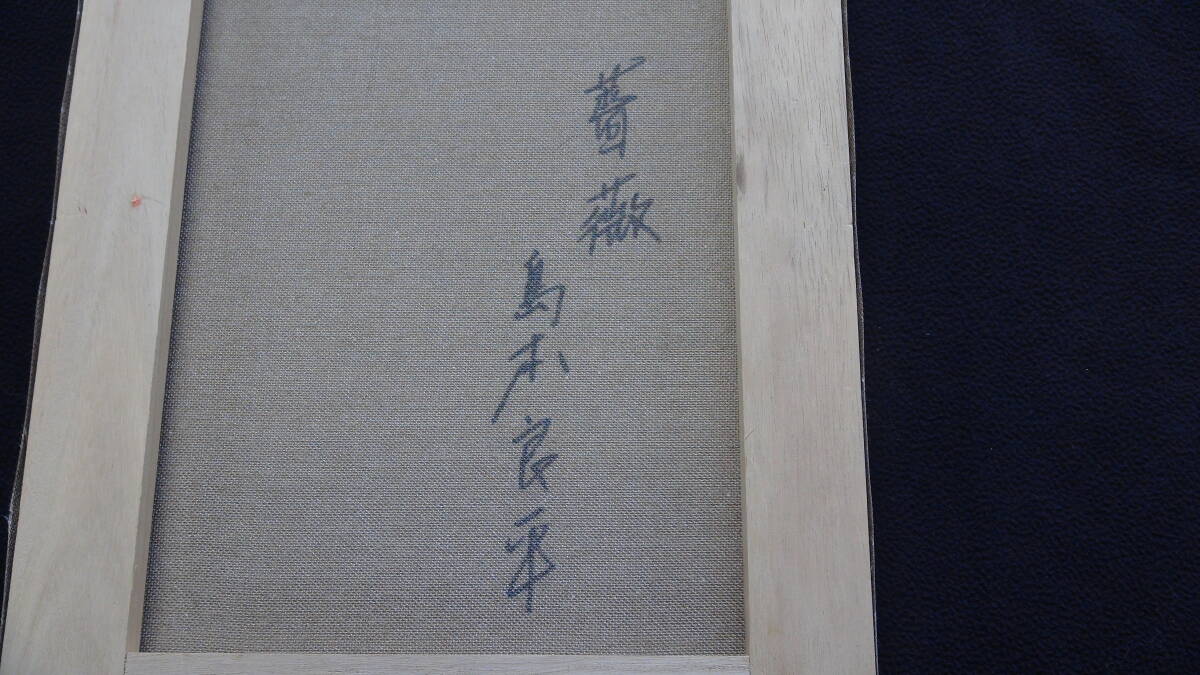 薔薇
島本良平